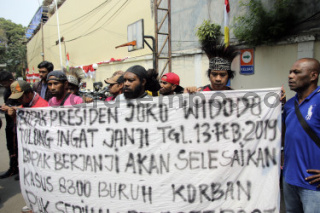 BAPAK PRESIDEN JOKO WIDODO
TOLONG INGAT JANJI TGL.13 FEB.2019
BAPAK BERJANJI AKAN SELESAIKAN
KASUS 8300 BURUH KORBAN